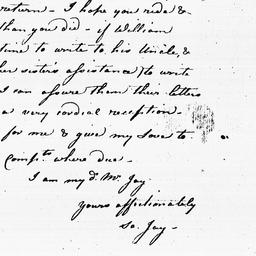 return - I hope you ride &
than you did - if William
time to write to his Uncle, &
her sisters assistance) to write
I can assure them their letters
a very cordial reception -
for me & give my Love to
Compts. where due -
I am my d. Mr. Jay
yours affectionately
So. Jay -